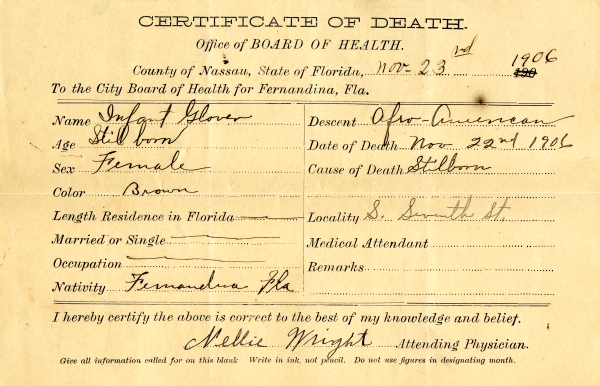 CERTIFICATE OF DEATH.
Office of BOARD OF HEALTH.
County of Nassau, State of Florida, Nov. 23rd 1906 190
To the City Board of Health for Fernandina, Fla.
Name Infant Glover
Age Stillborn
Sex Female
Color Brown
Length Residence in Florida
Married or Single
Occupation
Nativity Fernandina Fla
Descent Afro-American
Date of Death Nov 22nd 1906
Cause of Death Stilborn
Locality S. Seventh St.
Medical Attendant
Remarks
I hereby certify the above is correct to the best of my knowledge and belief.
Nellie Wright Attending Physician.
Give all information called for on this blank Write in ink, not pencil. Do not use figures in designating month.